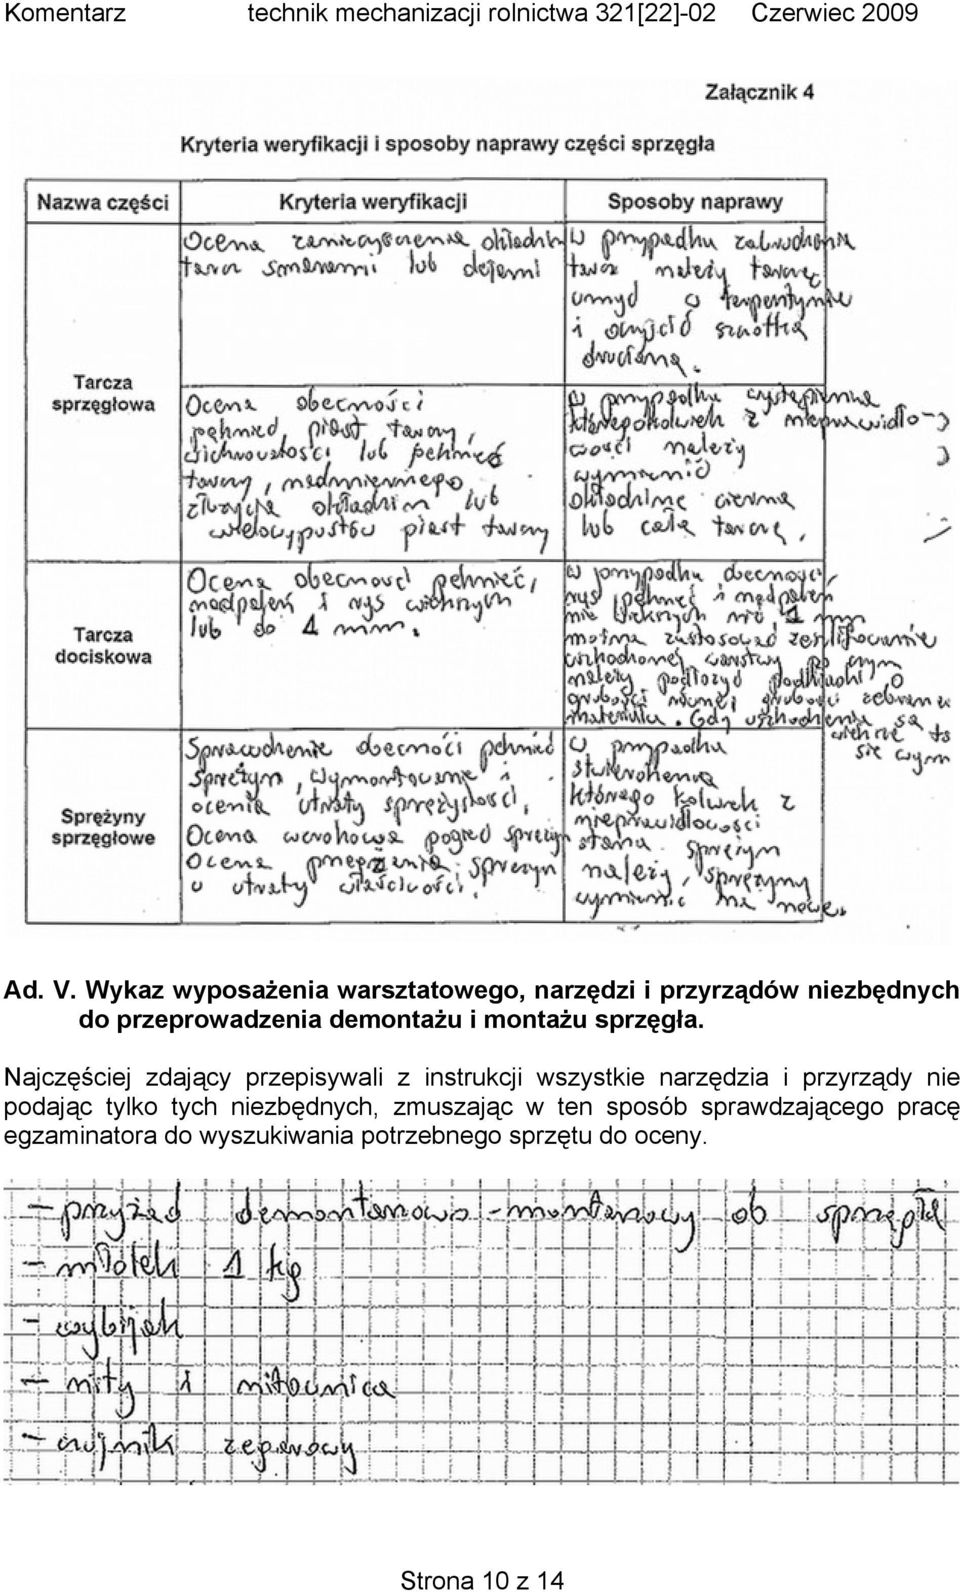 Komentarz technik mechanizacji rolnictwa 321[22]-02 Czerwiec 2009
Załącznik 4
Kryteria weryfikacji i sposoby naprawy części sprzęgła
Nazwa części Kryteria weryfikacji Sposoby naprawy
Tarcza
sprzęgłowa
Ocena zanieczyszczenia okładzin
tarcz smarami lub olejami
W przypadku zabrudzenia
tarcz należy tarczę
umyć o terpentynie
i oczyścić szczotką
drucianą.
Ocena obecności
pęknięć piast tarczy,
lub pęknięć
tarczy, nadmiernego
zużycia okładzin lub
wielowypustów piast tarczy
W przypadku wystąpienia
któregokolwiek z nieprawidło-
wości należy
wymienić
okładzinę cierną
lub całą tarczę.
Tarcza
dociskowa
Ocena obecności pęknięć,
nadpaleń i rys
lub do 1 mm.
W przypadku obecności
rys pęknięć i nadpaleń
nie większych niż 1 mm
można zastosować zeszlifowanie
uszkodzonej warstwy po czym
należy podłożyć podkładki o
grubości równej grubości zebranego
materiału. Gdy uszkodzenia są
większe to
się wym
Sprężyny
sprzęgłowe
Sprawdzenie obecności pęknięć
sprężyn, wymontowanie i
ocenia utraty sprężystości,
Ocena sprężyn
Ocena przegrzania sprężyn
o utraty właściwości.
W przypadku
stwierdzenia
którego kolwiek z
nieprawidłowości
stanu sprężyn
należy, sprężyny
wymienić na nowe.
Ad. V. Wykaz wyposażenia warsztatowego, narzędzi i przyrządów niezbędnych
do przeprowadzenia demontażu i montażu sprzęgła.
Najczęściej zdający przepisywali z instrukcji wszystkie narzędzia i przyrządy nie
podając tylko tych niezbędnych, zmuszając w ten sposób sprawdzającego pracę
egzaminatora do wyszukiwania potrzebnego sprzętu do oceny.
- przyżąd demontażowo-montażowy do sprzęgła
- młotek 1 kg
- wybijak
- nity i nitownica
- czujnik zegarowy
Strona 10 z 14